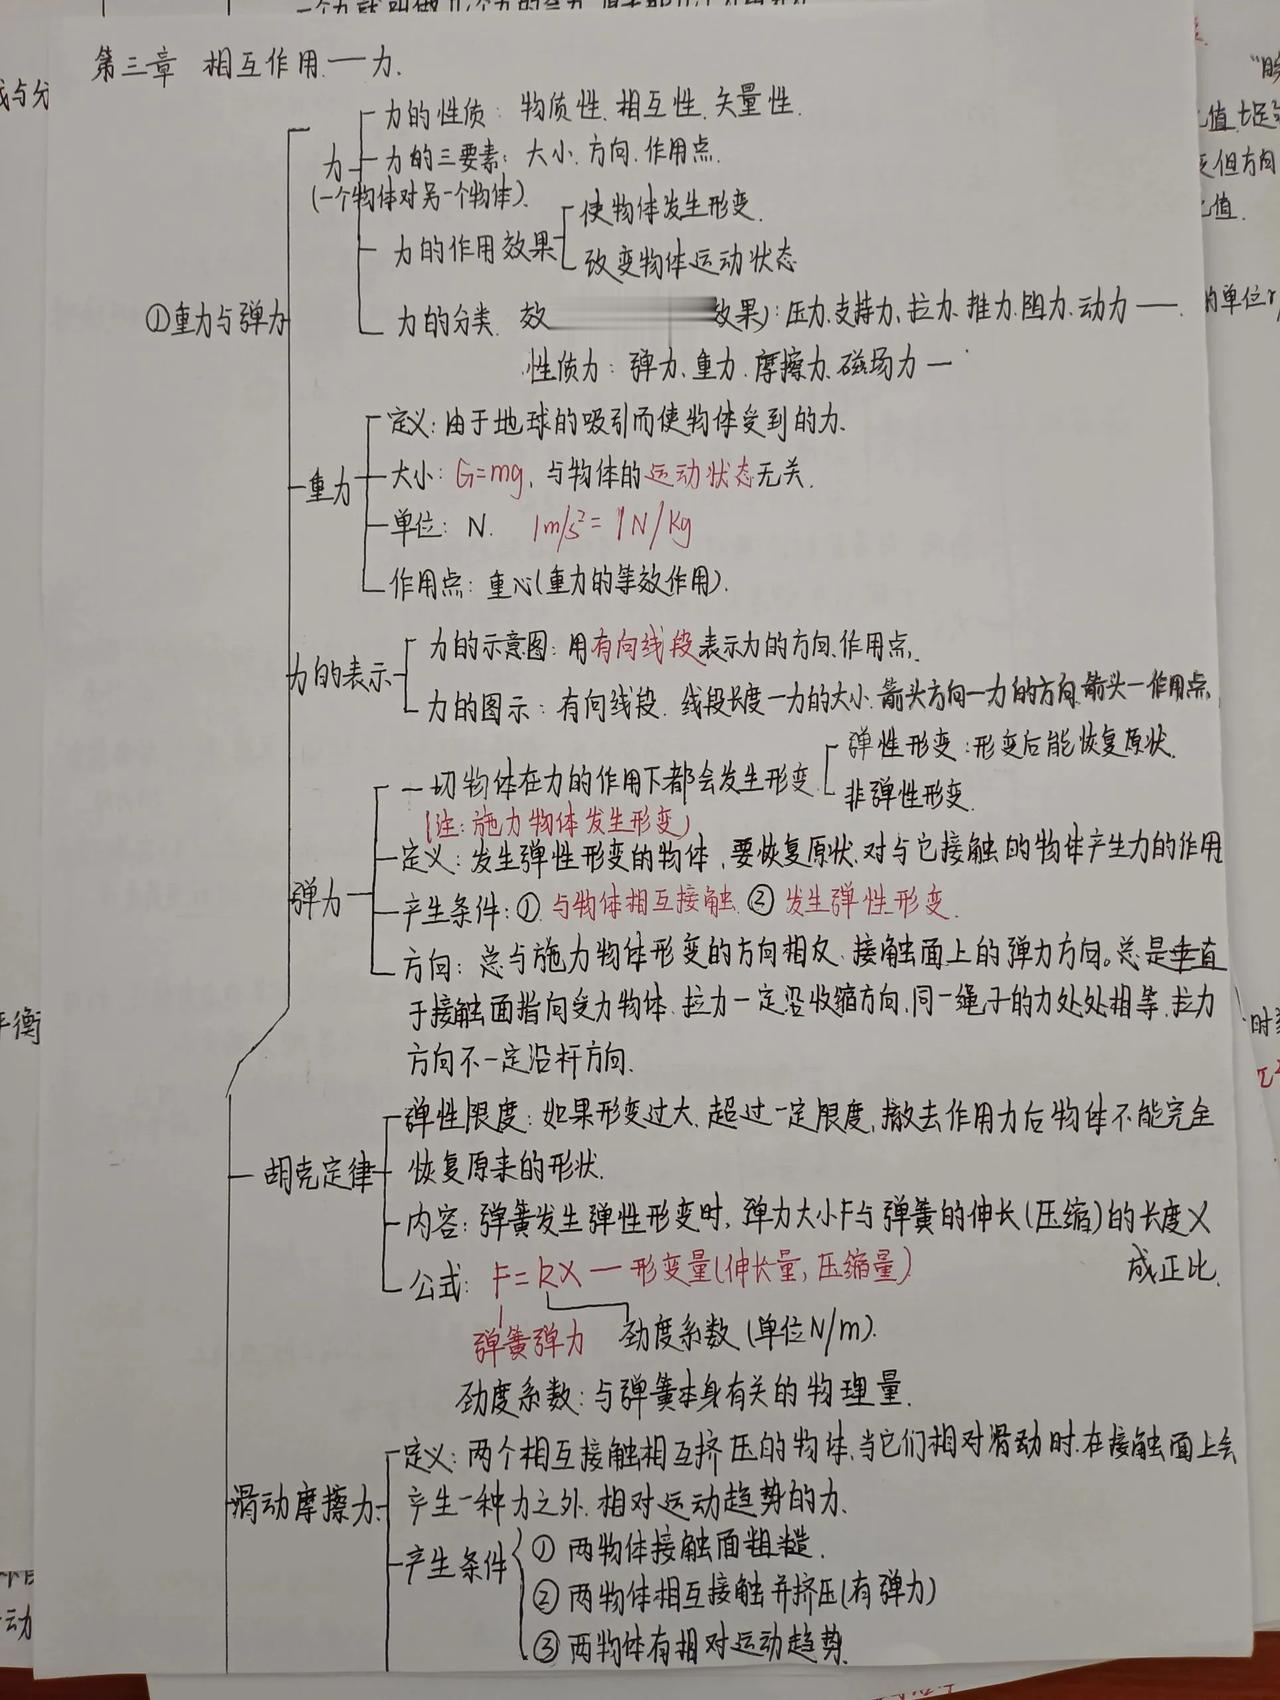 第三章 相互作用——力.
力的性质: 物质性. 相互性. 矢量性.
力 力的三要素: 大小. 方向. 作用点.
(一个物体对另一个物体).
力的作用效果 使物体发生形变.
改变物体运动状态
①重力与弹力
力的分类. 效 效果): 压力. 支持力、拉力. 推力. 阻力. 动力——.
性质力: 弹力、重力. 摩擦力. 磁场力—
重力
定义: 由于地球的吸引而使物体受到的力.
大小: G=mg, 与物体的运动状态无关.
单位: N. 1m/s²=1N/kg
作用点: 重心(重力的等效作用).
力的表示
力的示意图: 用有向线段表示力的方向.作用点.
力的图示: 有向线段. 线段长度—力的大小. 箭头方向—力的方向. 箭头—作用点.
弹力
一切物体在力的作用下都会发生形变 弹性形变:形变后能恢复原状.
非弹性形变.
(注: 施力物体发生形变)
定义: 发生弹性形变的物体, 要恢复原状. 对与它接触的物体产生力的作用
产生条件: ① 与物体相互接触 ② 发生弹性形变.
方向: 总与施力物体形变的方向相反. 接触面上的弹力方向。总是垂直
于接触面指向受力物体. 拉力一定沿收缩方向. 同一绳子的力处处相等. 拉力
方向不一定沿杆方向.
胡克定律
弹性限度: 如果形变过大, 超过一定限度, 撤去作用力后物体不能完全
恢复原来的形状.
内容: 弹簧发生弹性形变时, 弹力大小F与弹簧的伸长(压缩)的长度x
成正比.
公式: F=kx—形变量(伸长量, 压缩量)
弹簧弹力 劲度系数 (单位N/m).
劲度系数: 与弹簧本身有关的物理量.
滑动摩擦力
定义: 两个相互接触相互挤压的物体, 当它们相对滑动时. 在接触面上会
产生一种力之外. 相对运动趋势的力.
产生条件 ① 两物体接触面粗糙.
② 两物体相互接触并挤压(有弹力)
③ 两物体有相对运动趋势.
值.
但方向
值.
的单位
平衡
时
动